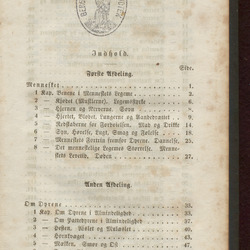 Indhold.
Første Afdeling.
Side.
Mennesket 1.
1 Kap. Benene i Menneskets Legeme 3.
2 — Kjødet (Musklerne). Legemsstyrke 8.
3 — Hjernen og Nerverne. Søvn
4 — Hjertet, Blodet, Lungerne og Aandedrættet
5 — Redskaberne for Fordøielsen. Mad og Drikke 14.
6 — Syn, Hørelse, Lugt, Smag og Følelse 18.
7 — Menneskets Fortrin fremfor Dyrene. Dannelse, 25.
8 — Det menneskelige Legemes Størrelse. Menneskets Levetid. Døden 27.
Anden Afdeling.
Om Dyrene 33.
1 Kap. Om Dyrene i Almindelighed 33.
2 — Om Pattedyrene i Almindelighed 37.
3 — Hesten, Æslet og Mulæslet 40.
4 — Hornkvæget 45.
5 — Melken, Smør og Ost 47.